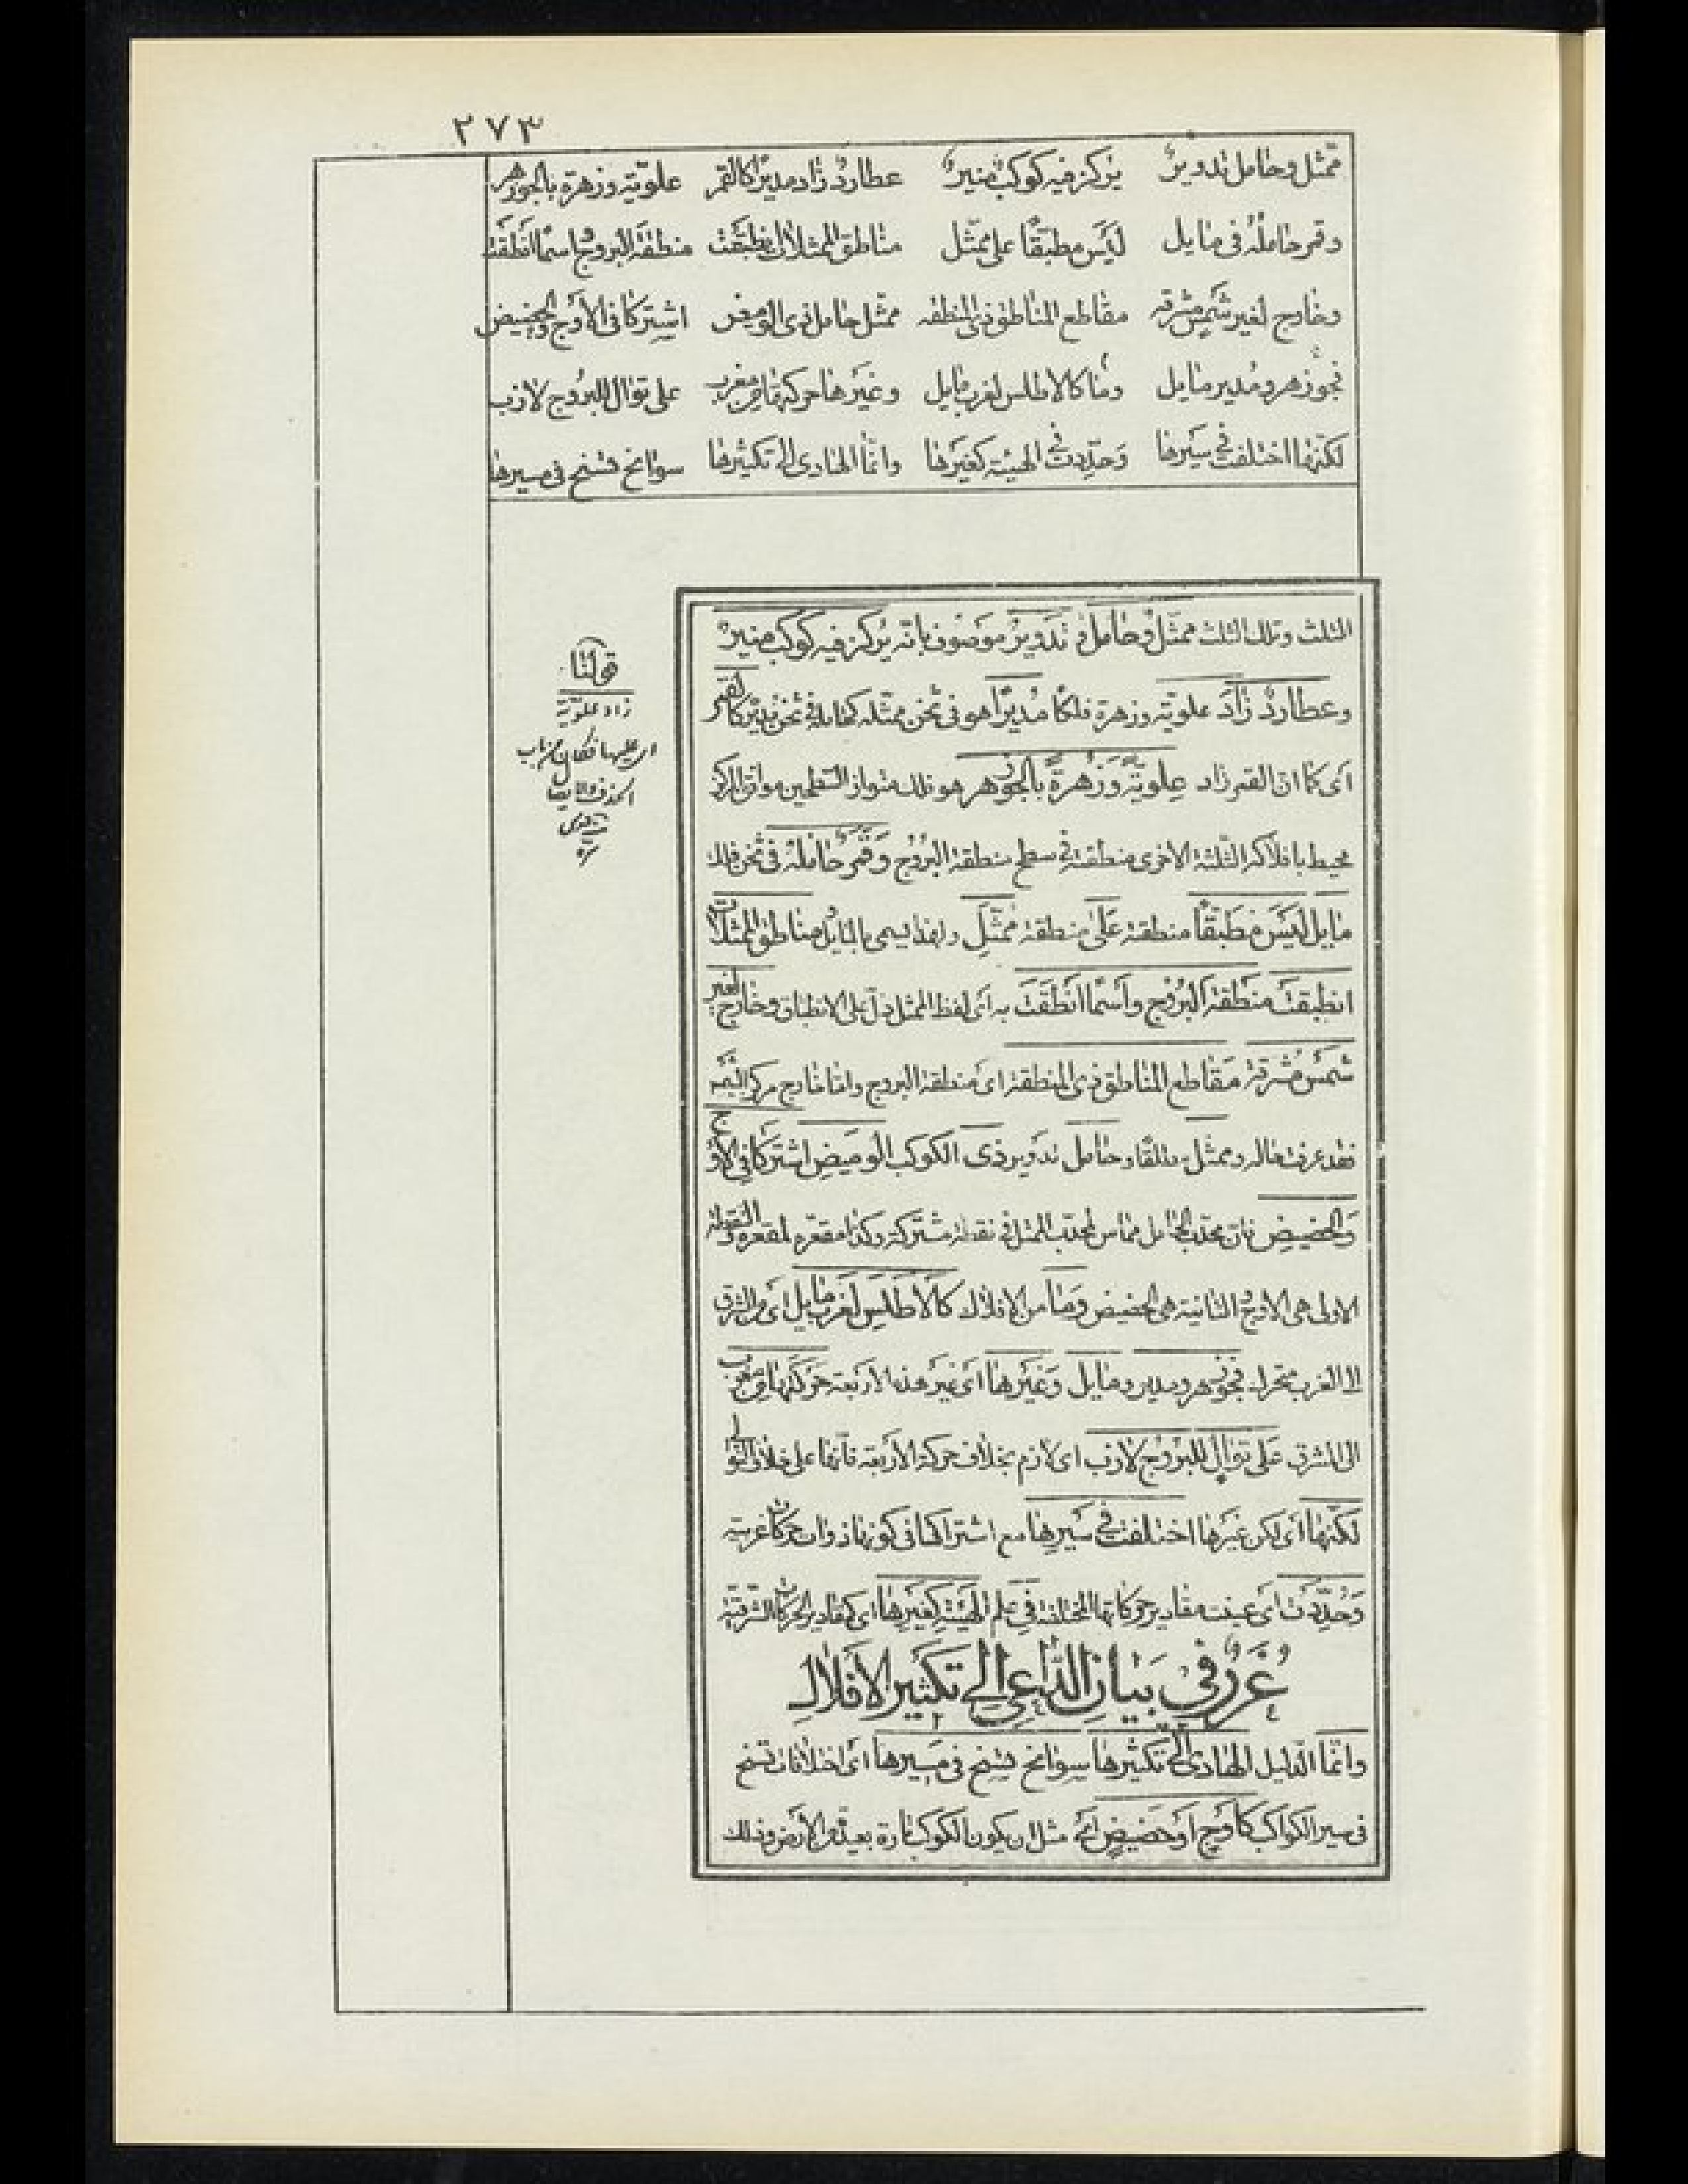 ٢٧٣
ممثل وحامل تدوير يركز فيه كوكب منير عطارد زاد مديرا كالقمر علوية وزهرة بالجوزهر
وقمر حامله في مايل ليس مطبقا على ممثل مناطق الممثلات انطبقت منطقة البروج اسما انطقت
وخارج لغير شمس مشرقه مقاطع المناطق ذي المنطقه ممثل حامل ذي الوميض اشتركا في الاوج والحضيض
فجوزهر ومدير مايل وما كالاطلس لغرب مايل وغيرها حركة من مغرب على توال للبروج لازب
لكنها اختلفت في سيرها وحددت في الهيئة كغيرها وانما الهادي الى تكثيرها سوانح تسنح في مسيرها
المثلث وتلك الثلث ممثل وحامل و تدوير موصوف بانه يركز فيه كوكب منير
وعطارد زاد علوية وزهرة فلكا مديرا هو في ثخن ممثله كحامله في ثخن مديره كالقمر
اى كما ان القمر زاد علوية وزهرة بالجوزهر هو فلك متوازى السطحين موافق المركز
محيط بافلاكه الثلثة الاخرى منطقته في سطح منطقة البروج وقمر حامله في ثخن فلك
مايل ليس مطبقا منطقته على منطقة ممثل ولهذا يسمى بالمايل مناطق الممثلات
انطبقت منطقة البروج واسما انطقت به اى لفظ الممثل دل على الانطباق وخارج لغير
شمس مشرقة مقاطع المناطق ذى المنطقة اى منطقة البروج واما خارج مركز الشمس
فقد عرفت حاله وممثل مطلقا وحامل تدوير ذى الكوكب الوميض اشتركا في الاوج
والحضيض فان محدب الحامل مماس لمحدب الممثل في نقطة مشتركة وكذا مقعره لمقعره والنقطة
الاولى هى الاوج والثانية هى الحضيض وما من الافلاك كالاطلس لغرب مايل اى من الشرق
الى الغرب متحرك فجوزهر ومدير ومايل وغيرها اى غير هذه الاربعة حركتها من مغرب
الى المشرق على توال للبروج لازب اى لازم بخلاف حركة الاربعة فانها على خلاف التوالى
لكنها اى لكن غيرها اختلفت في سيرها مع اشتراكها في كونها ذوات حركات غربية
وحددت اى عينت مقادير حركاتها المختلفة في علم الهيئة كغيرها اى كمقادير الحركات الشرقية
غرر في بيان الداعي الى تكثير الافلاك
وانما الدليل الهادى الى تكثيرها سوانح تسنح في مسيرها اى اختلافات تسنح
في سير الكواكب كاوج او حضيض اى مثل ان يكون الكوكب تارة بعيدا من الارض وذلك
قولنا
زاد علوية
اى عليها فكان من باب
الحذف والايصال
منه